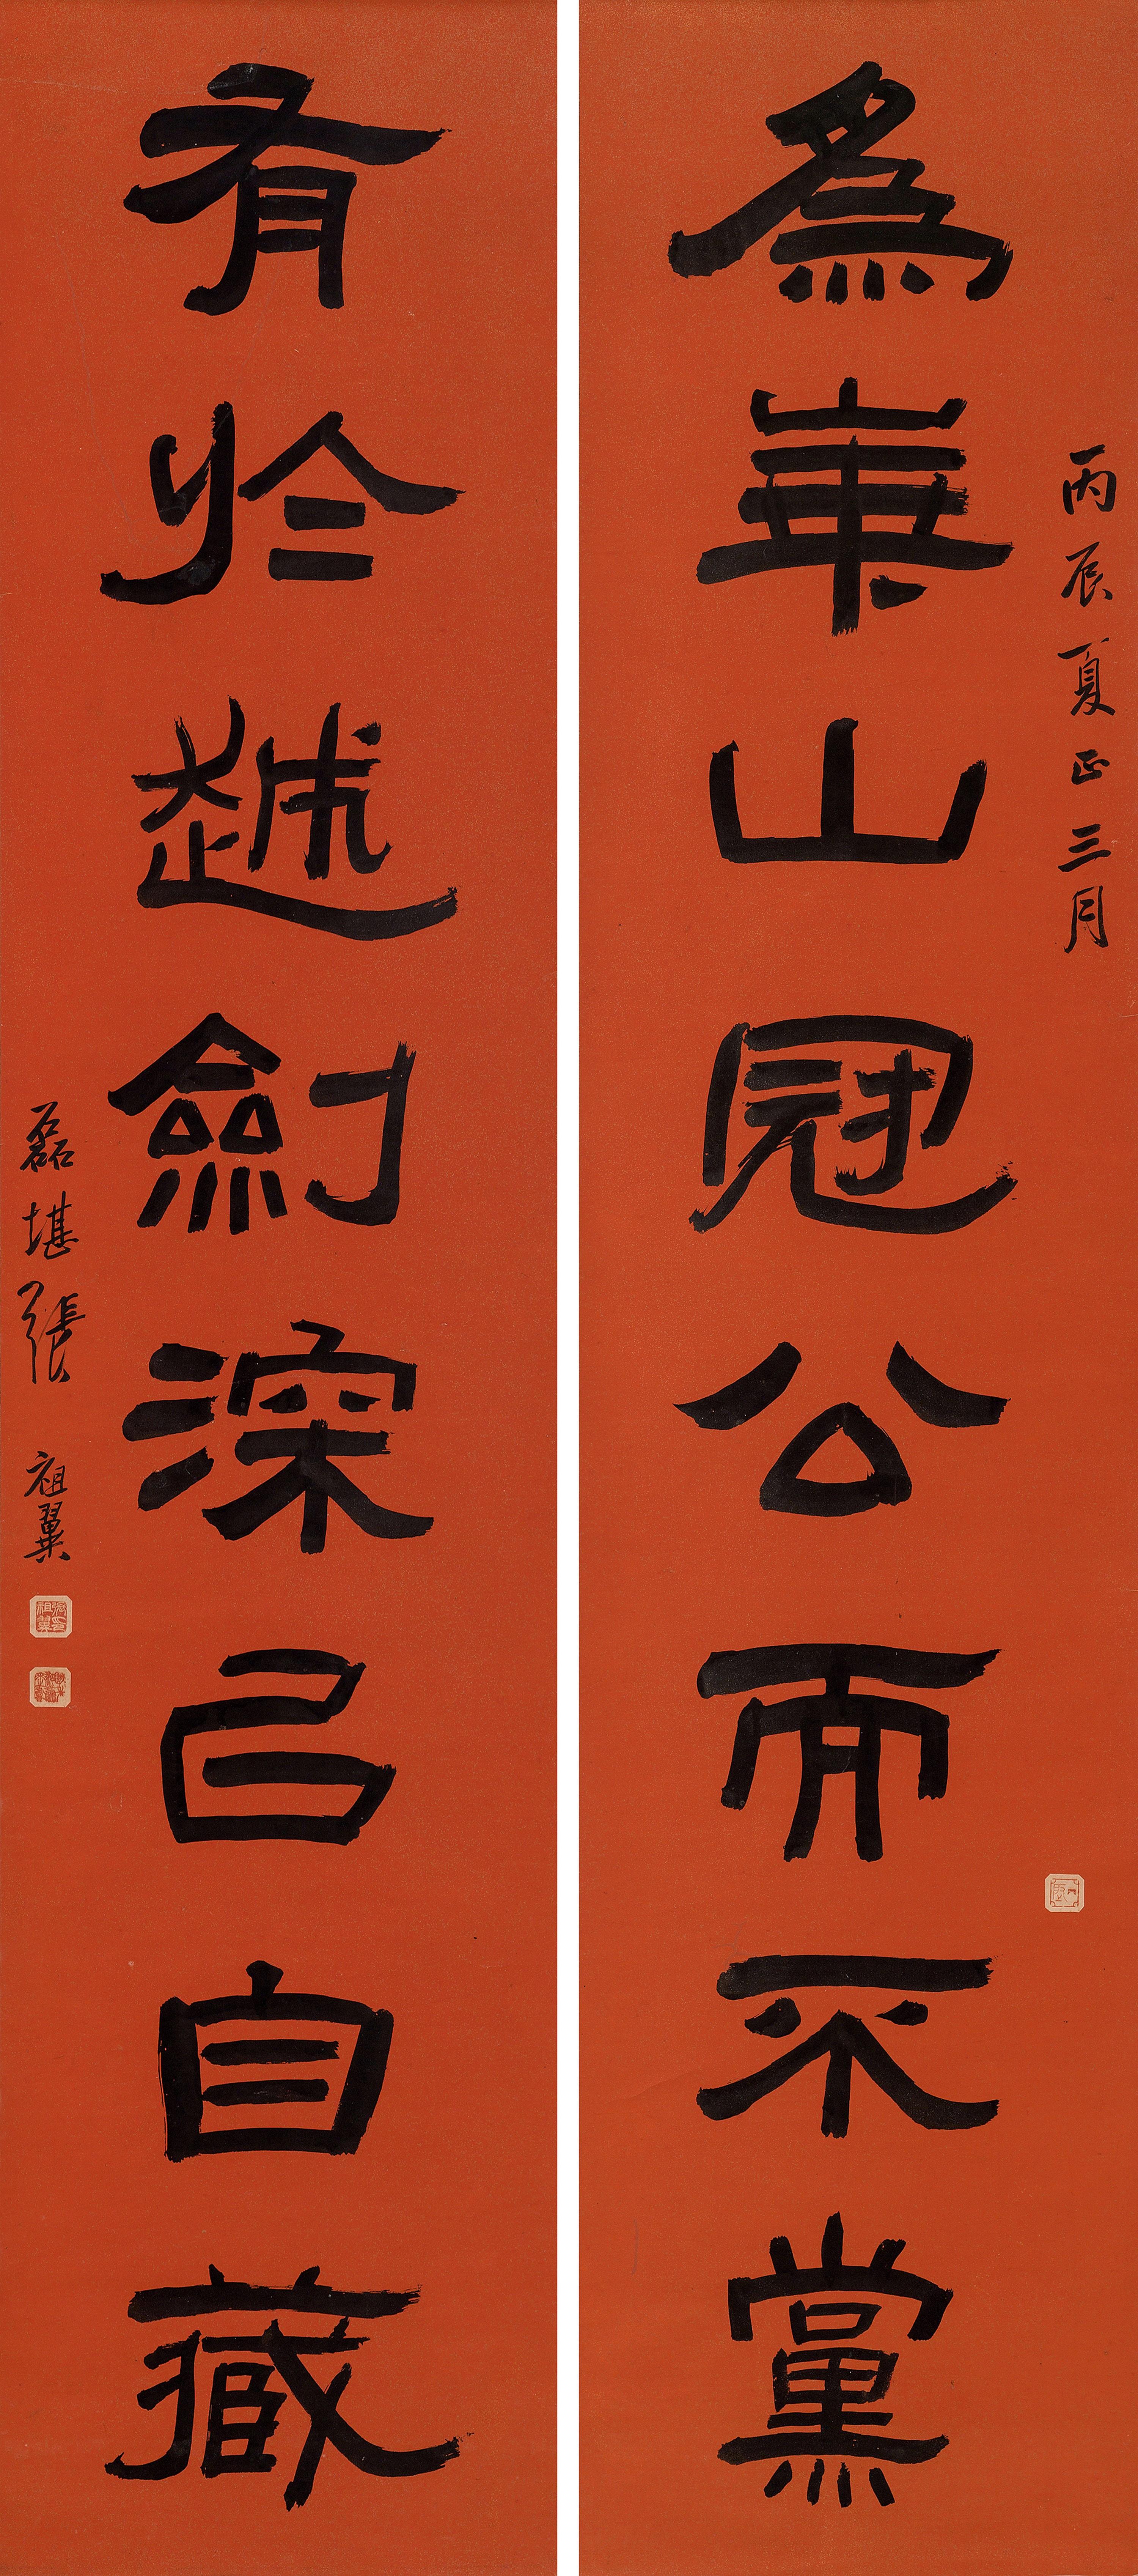 丙辰夏正三月
為華山冠公而不黨
有於越劍深已自藏
磊堪張祖翼